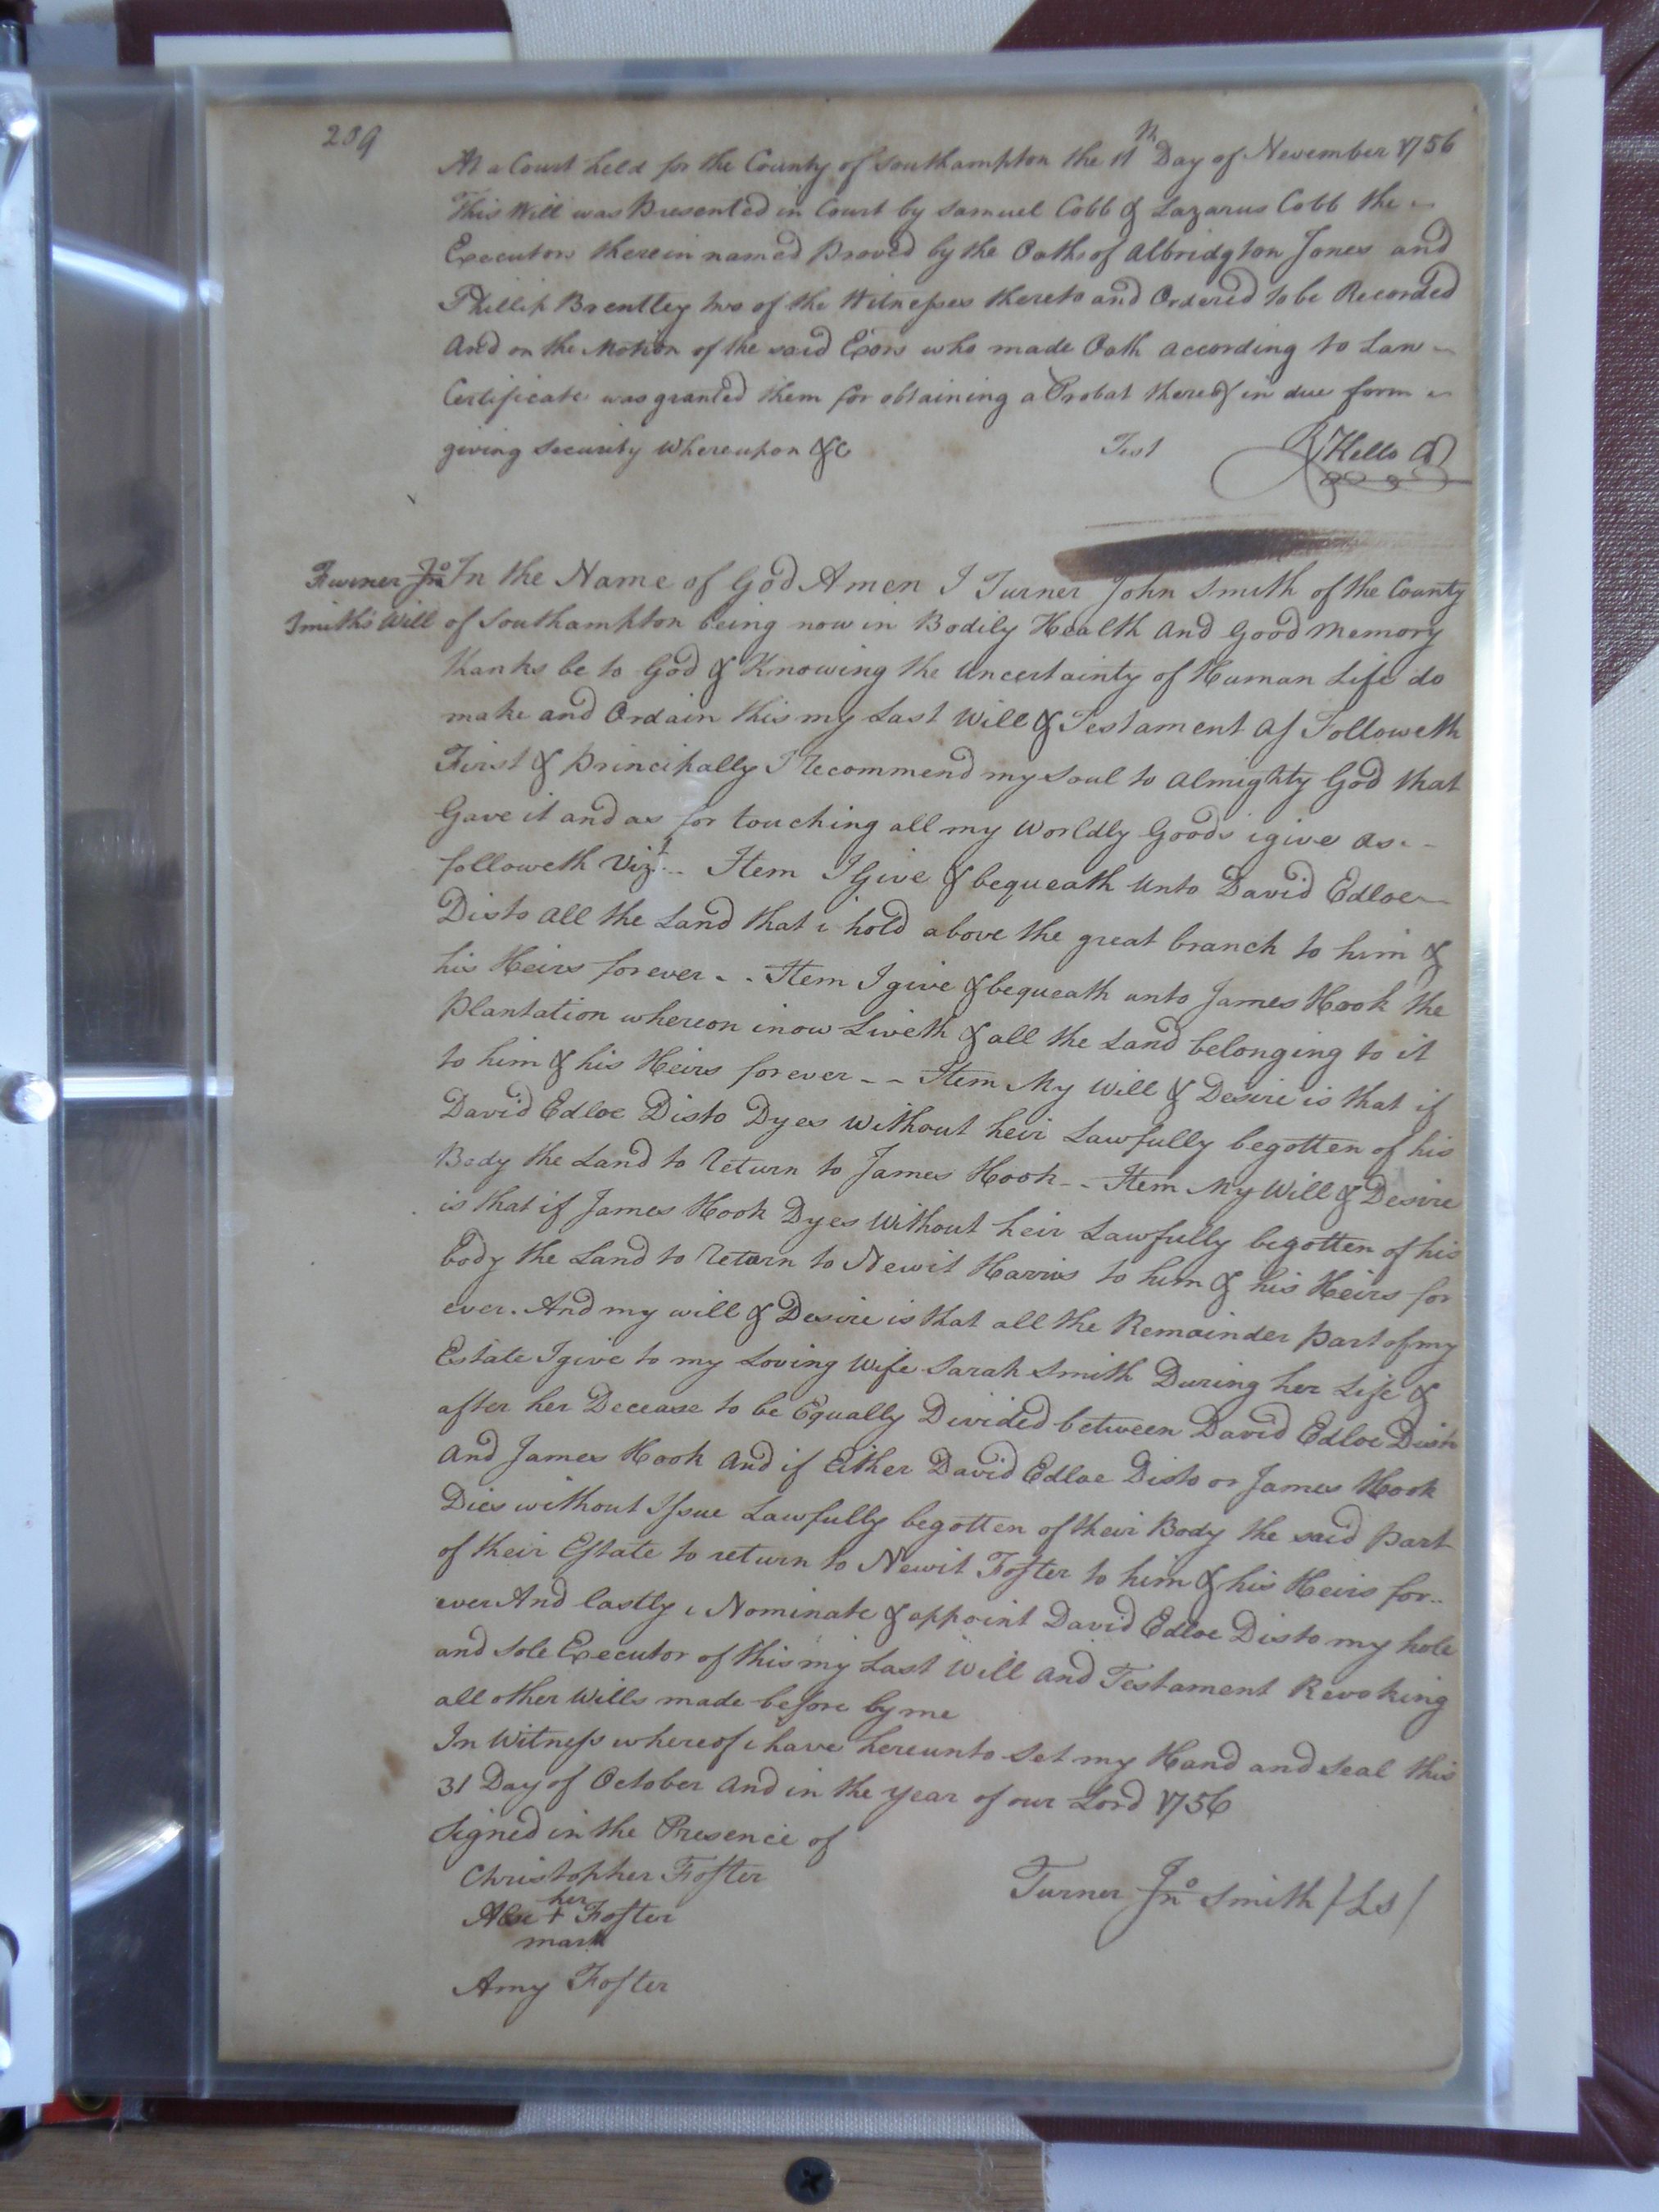 209
At a Court held for the County of Southampton the 11th Day of November 1756
This Will was Presented in Court by Samuel Cobb & Lazarus Cobb the
Executors therein named Proved by the Oaths of Albridgton Jones and
Phillip Brentley two of the Witnesses thereto and Ordered to be Recorded
And on the Motion of the said Exors who made Oath according to Law
Certificate was granted them for obtaining a Probat thereof in due form
giving Security Whereupon &c Test R Kello
Turner Jno In the Name of God Amen I Turner John Smith of the County
Smith's Will of Southampton being now in Bodily Health and Good Memory
thanks be to God & Knowing the Uncertainty of Human Life do
make and Ordain this my Last Will & Testament as Followeth
First & Principally I recommend my Soul to Almighty God that
Gave it and as for touching all my Worldly Goods i give as
followeth Vizt Item I Give & bequeath Unto David Edloe
Disto all the Land that i hold above the great branch to him &
his Heirs forever - - Item I give & bequeath unto James Hook the
Plantation whereon i now Liveth & all the Land belonging to it
to him & his Heirs forever - - Item My Will & Desire is that if
David Edloe Disto Dyes Without heir Lawfully begotten of his
Body the Land to return to James Hook - - Item My Will & Desire
is that if James Hook Dyes Without heir Lawfully begotten of his
body the Land to return to Newit Harris to him & his Heirs for
ever. And my will & Desire is that all the Remainder Part of my
Estate I give to my Loving Wife Sarah Smith During her Life &
after her Decease to be Equally Divided between David Edloe Disto
And James Hook And if Either David Edloe Disto or James Hook
Dies without Issue Lawfully begotten of their Body the said Part
of their Estate to return to Newit Foster to him & his Heirs for
ever And lastly i Nominate & appoint David Edloe Disto my hole
and Sole Executor of this my Last Will and Testament Revoking
all other Wills made before by me
In Witness whereof i have hereunto Set my Hand and Seal this
31 Day of October And in the year of our Lord 1756
Signed in the Presence of
Christopher Foster
Turner Jno Smith /LS/
her
+ Foster
mark
Amy Foster